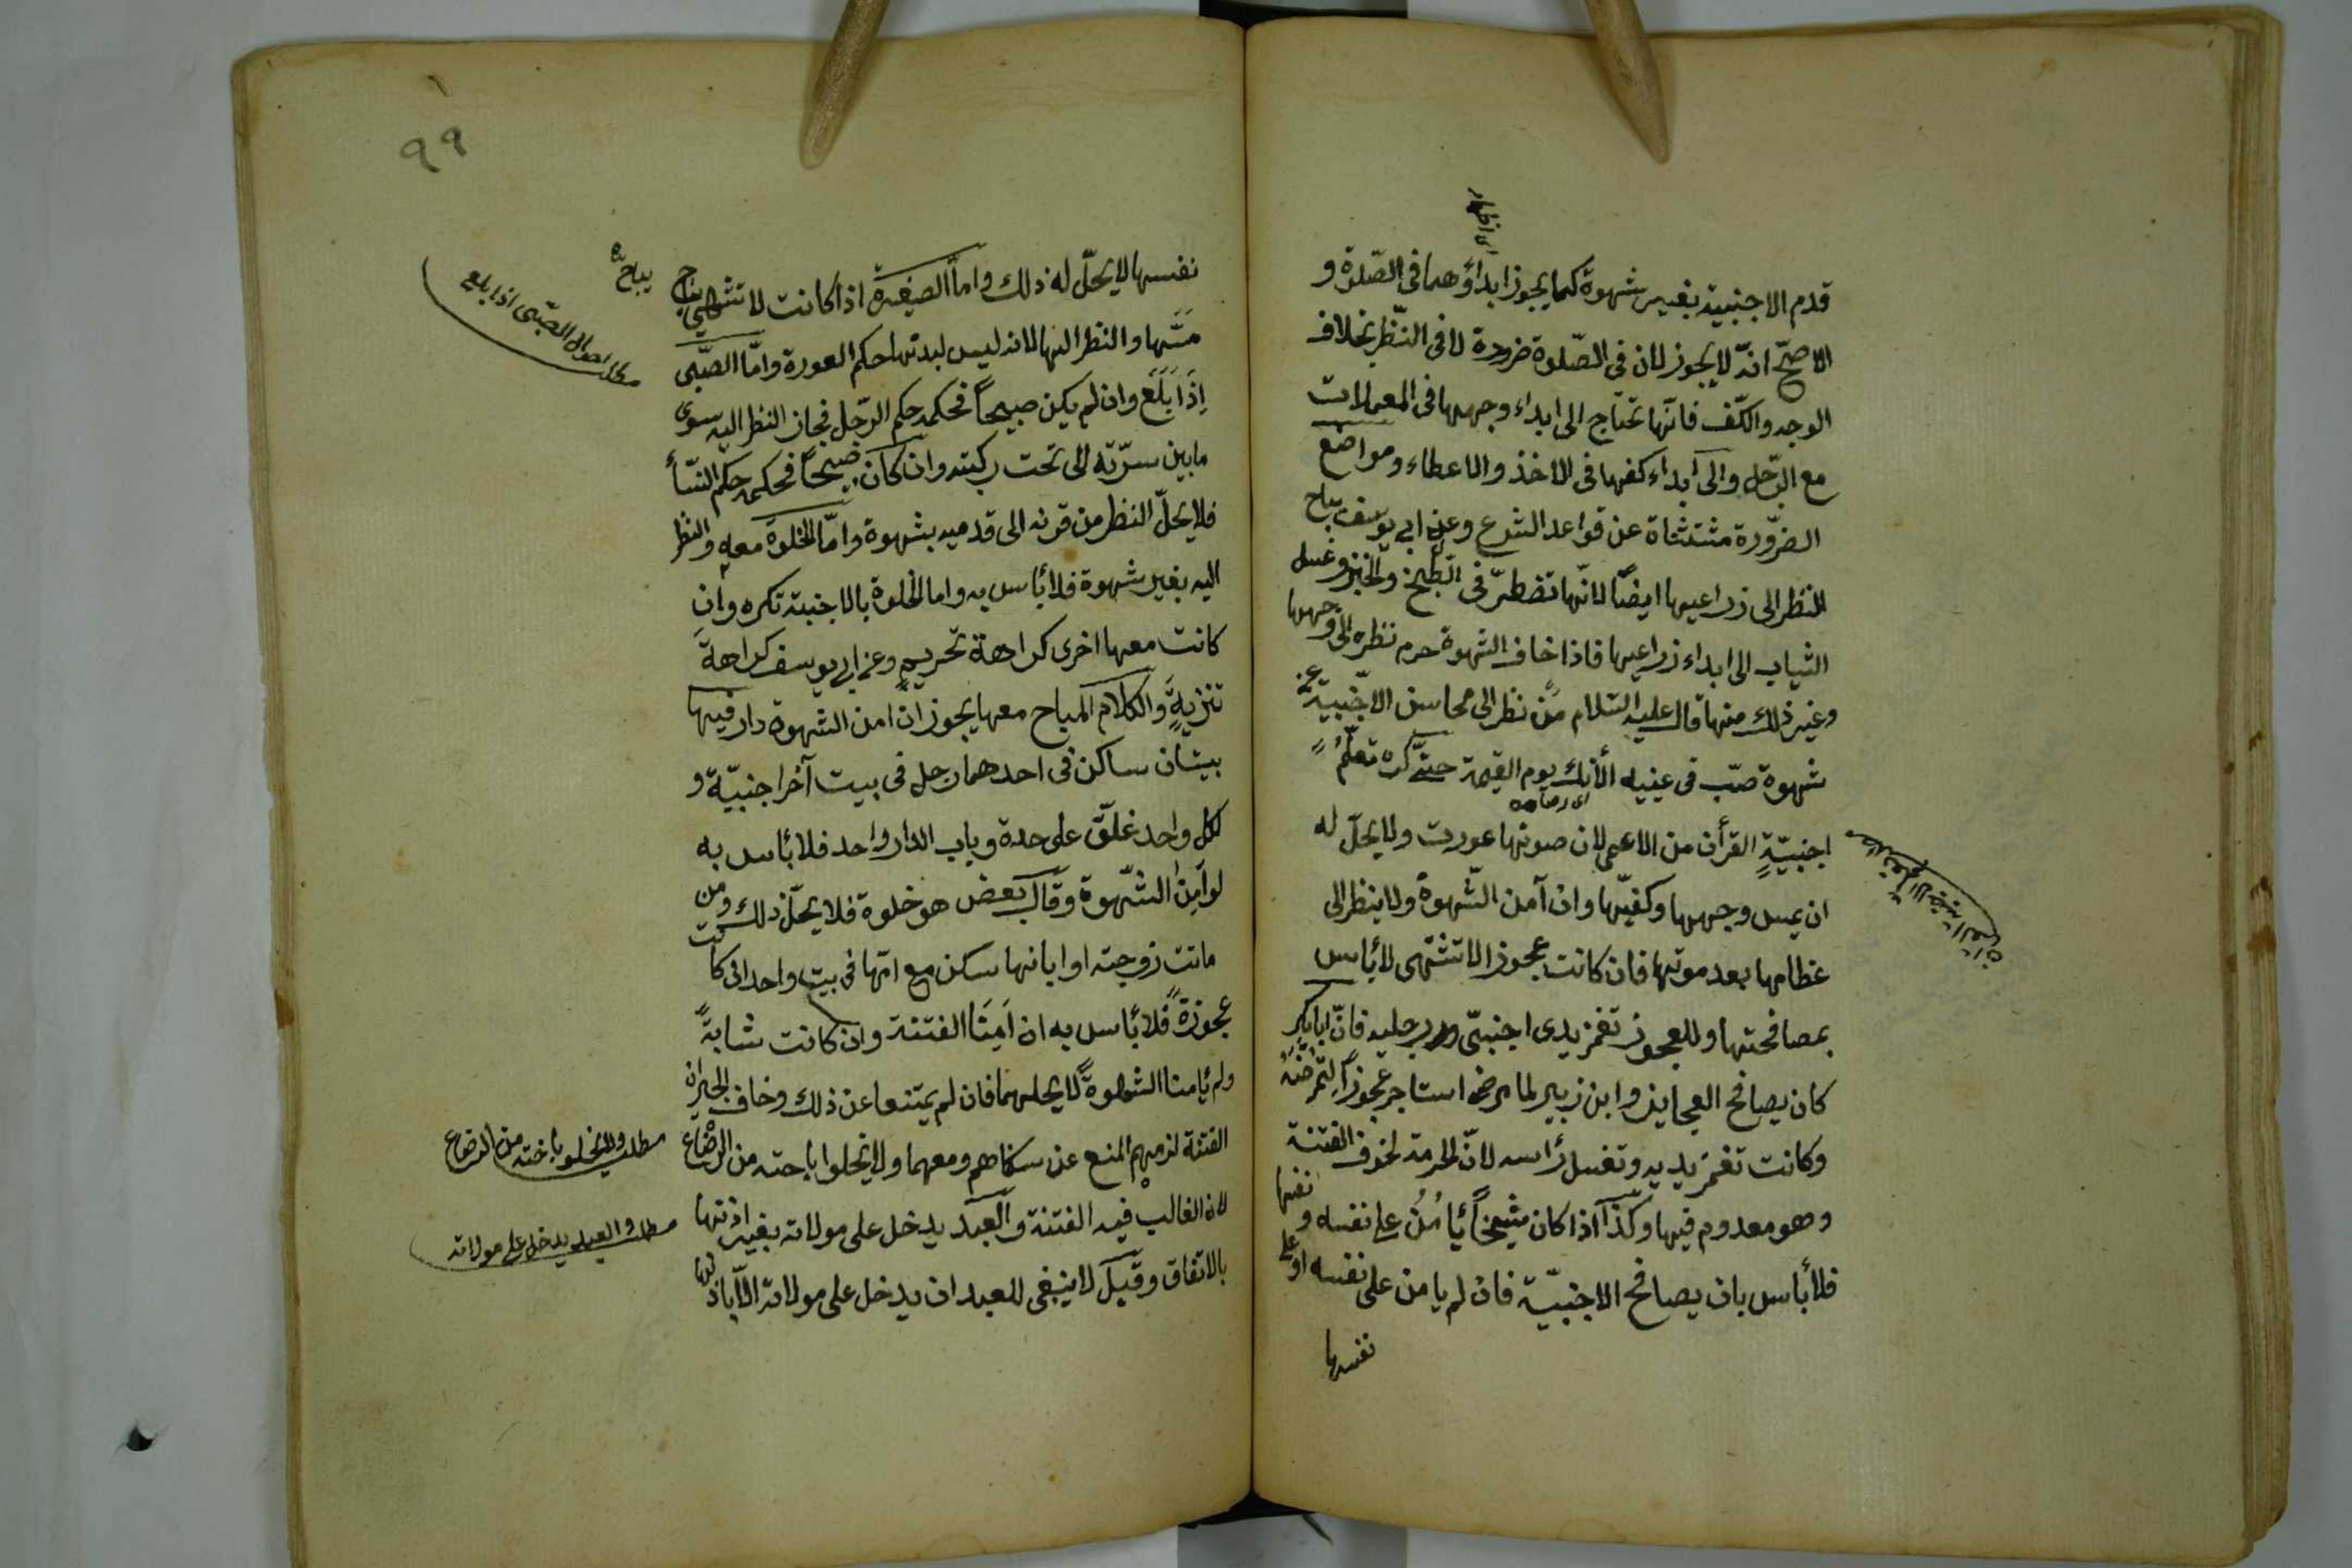 قدم الاجنبية بغير شهوة كما يجوز ابداؤهما فى الصّلوة و
الاصحّ انّه لا يجوز لان فى الصّلوة ضرورة لا فى النّظر بخلاف
الوجه والكّف فانّها تحتاج الى ابداء وجهها فى المعملات
مع الرّجل والى ابداء كفها فى الاخذ والاعطاء ومواضع
الضرّورة مشتثناة عن قواعد الشرع وعن ابى يوسف يباح
النظر الى ذراعيها ايضًا لانّها تضطرّ فى الطبخ والخبز وغسل
الثياب الى ابداء ذراعيها فاذا خاف الشهوة حرم نظره الى وجهها
وغير ذلك منها قال عليه السّلام مَنْ نظر الى محاسن الاجنبيّة عن
شهوة صبّ فى عينيه الأنك يوم القيمة حتّى كره تعلّم
اجنبيّةٍ القرأن من الاعمى لان صوتها عورت ولا يحلّ له
ان يمس وجهها وكفيّها وان آمن الشّهوة ولا ينظر الى
عظامها بعد موتها فان كانت عجوز الا تشتهى لا بأس
بمصافحتها وللعجوز تغمز يدى اجنبىّ ورجليه فانّ ابا بكر
كان يصافح العجايز وابن زبير لما مرض استاجر عجوزًا لتمرضه
وكانت تغمز يديه وتغسل رأسه لانّ الحرمة لخوف الفتنة
وهو معدوم فيها وكذا اذا كان شيخًا يأمَنُ على نفسه و نفسها
فلا بأس بان يصافح الاجنبيّة فان لم يامن على نفسه او على
نفسها
٩٩
نفسها لا يحلّ له ذلك وامّا الصغيرة اذا كانت لا تشتهى يباح
مَسَّها والنظر اليها لانه ليس لبدنها حكم العورة وامّا الصّبى
اِذَا بَلَغَ وان لم يكن صبيحاً فحكمه حكم الرّجل فجاز النظر اليه سوى
ما بين سرّته الى تحت ركبته وان كان صبيحاً فحكمه حكم النّسأ
فلا يحلّ النظر من قرنه الى قدميه بشهوة وامّا الخلوة معه والنظر
اليه بغير شهوة فلا بأس به واما الخلوة بالاجنبية تكره وان
كانت معها اخرى كراهة تحريمٍ وعن ابى يوسف كراهة
تنزيهٍ والكلام المباح معها يجوز ان امن الشهوة دار فيها
بيتان ساكن فى احدهما رجل فى بيت آخر اجنبيّة و
لكل واحد غلقٌ على حدة وباب الدار واحد فلا بأس به
لو آمن الشّهوة وقال بعض هو خلوة فلا يحلّ ذلك ومن
ماتت زوجته او ابانها سكن مع امّها فى بيت واحد ان كانت
عجوزةً فلا بأس به ان اَمِنَا الفتنة وان كانت شابةً
ولم يأمنا الشهوة لا يحلهما فان لم يمتنعا عن ذلك وخاف الجيران
الفتنة لزمهم المنع عن سكناهم ومعهما ولا يخلوا باخته من الرضاع
لان الغالب فيه الفتنة والعبد يدخل على مولاته بغير اذنها
بالاتفاق وقيل لا ينبغى للعبد ان يدخل على مولاته الا باذنها
يباح
الصّبى اذا بلغ
مطلب ولا يخلو باخته من الرضاع
مطلب والعبد يدخل على مولاته